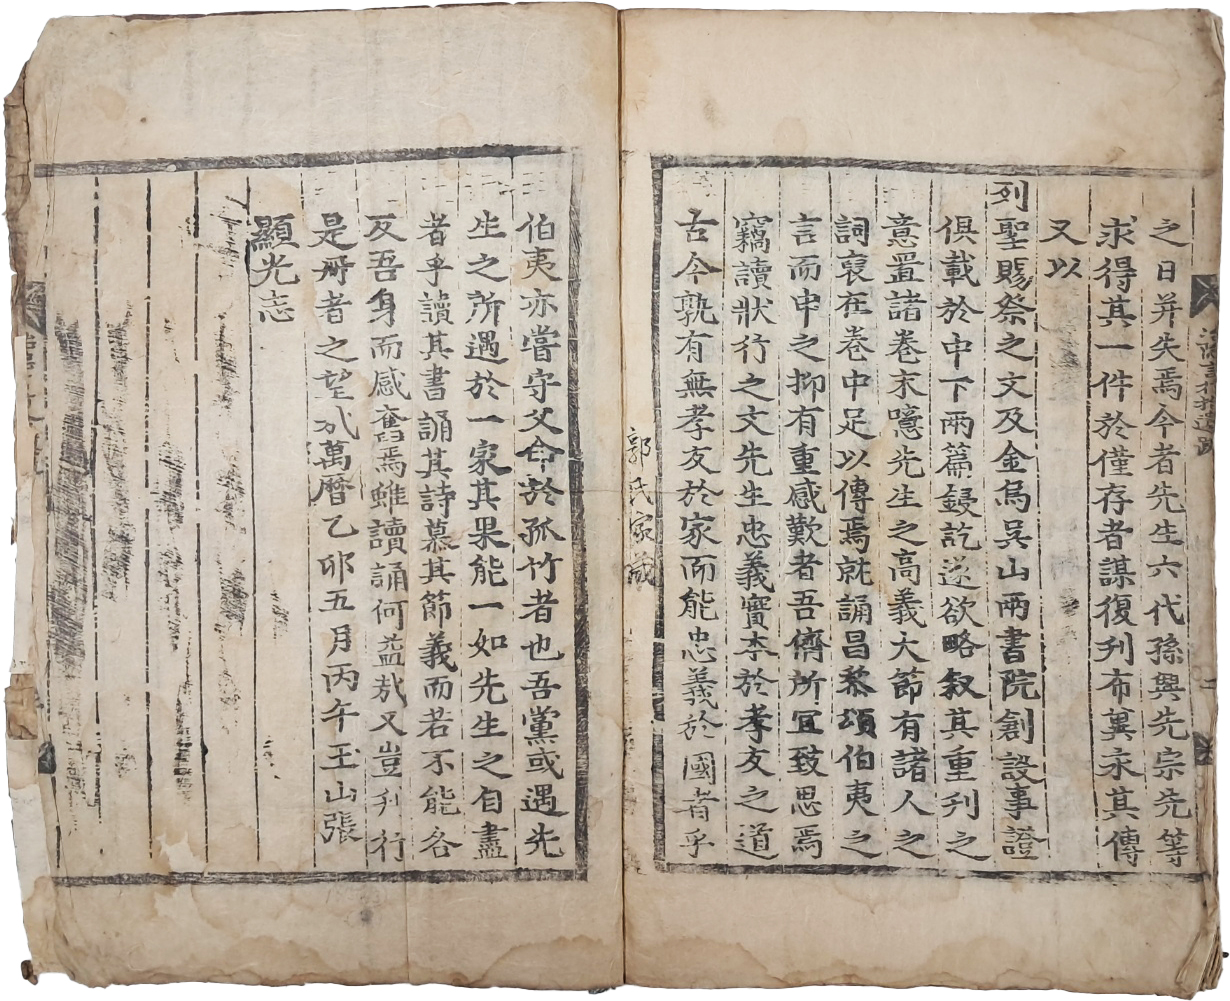 之日并失焉今者先生六代孫興先宗先等
求得其一件於僅存者謀復刋布冀永其傳
又以
列聖賜祭之文及金烏吳山兩書院創設事證
俱載於中下兩篇鋟訖遂欲略叙其重刋之
意置諸卷末噫先生之高義大節有諸人之
詞裒在卷中足以傳焉就誦昌黎頌伯夷之
言而申之抑有重感歎者吾儕所冝致思焉
竊讀狀行之文先生忠義實本於孝友之道
古今孰有無孝友於家而能忠義於國者乎
郭氏家藏
伯夷亦嘗守父命於孤竹者也吾黨或遇先
生之所遇於一家其果能一如先生之自盡
者乎讀其書誦其詩慕其節義而若不能各
反吾身而感奮焉雖讀誦何益哉又豈刋行
是册者之望哉萬曆乙卯五月丙午玉山張
顯光志